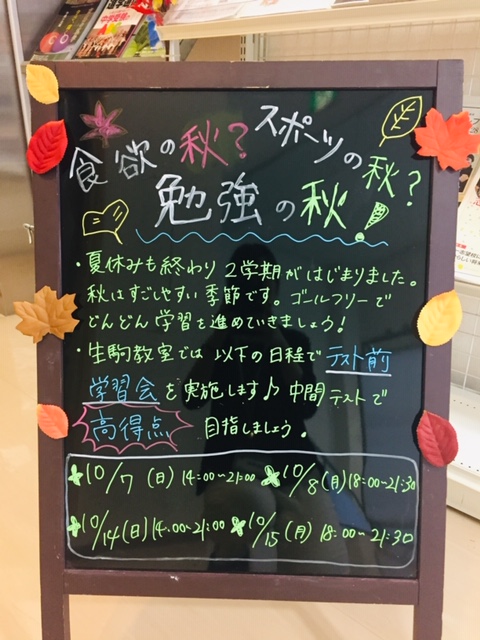 食欲の秋？スポーツの秋？
勉強の秋！
・夏休みも終わり2学期がはじまりました。
秋はすごしやすい季節です。ゴールフリーで
どんどん学習を進めていきましょう！
・生駒教室では以下の日程でテスト前
学習会を実施します♪中間テストで
高得点 目指しましょう。
10/7(日)14:00〜21:00 10/8(月)18:00〜21:30
10/14(日)14:00〜21:00 10/15(月)18:00〜21:30